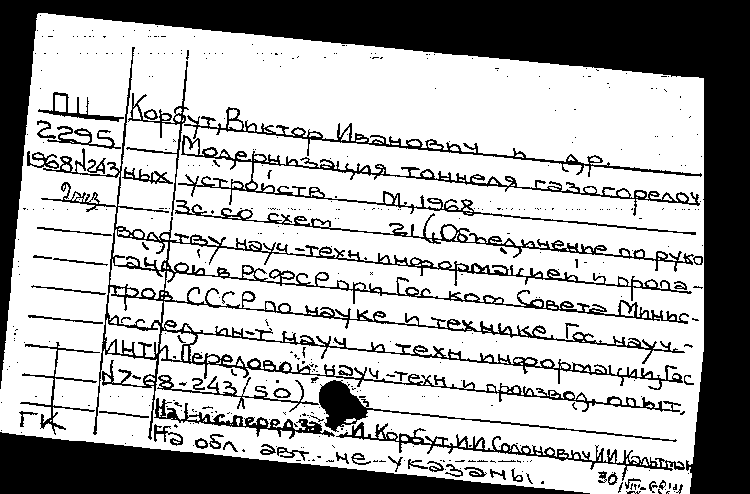 ПЦ
2295
1968 N243
2 экз
Корбут, Виктор Иванович и др.
Модернизация тоннеля газогорелоч
ных устройств. М., 1968
3с. со схем 21 („Объединение по руко
водству науч-техн. информацией и пропа-
гандой в РСФСР при Гос. ком. Совета Минис-
тров СССР по науке и технике. Гос. науч.-
исслед. ин-т науч и техн. информации, Гос
ИНТИ. Передовой науч.-техн. и производ. опыт.
N7-68-243/50)
На 1-й с. перед за И. Корбут, И.И. Солонович, И.И. Кальтман
На обл. авт. не указаны.
ГК
30/VIII-68